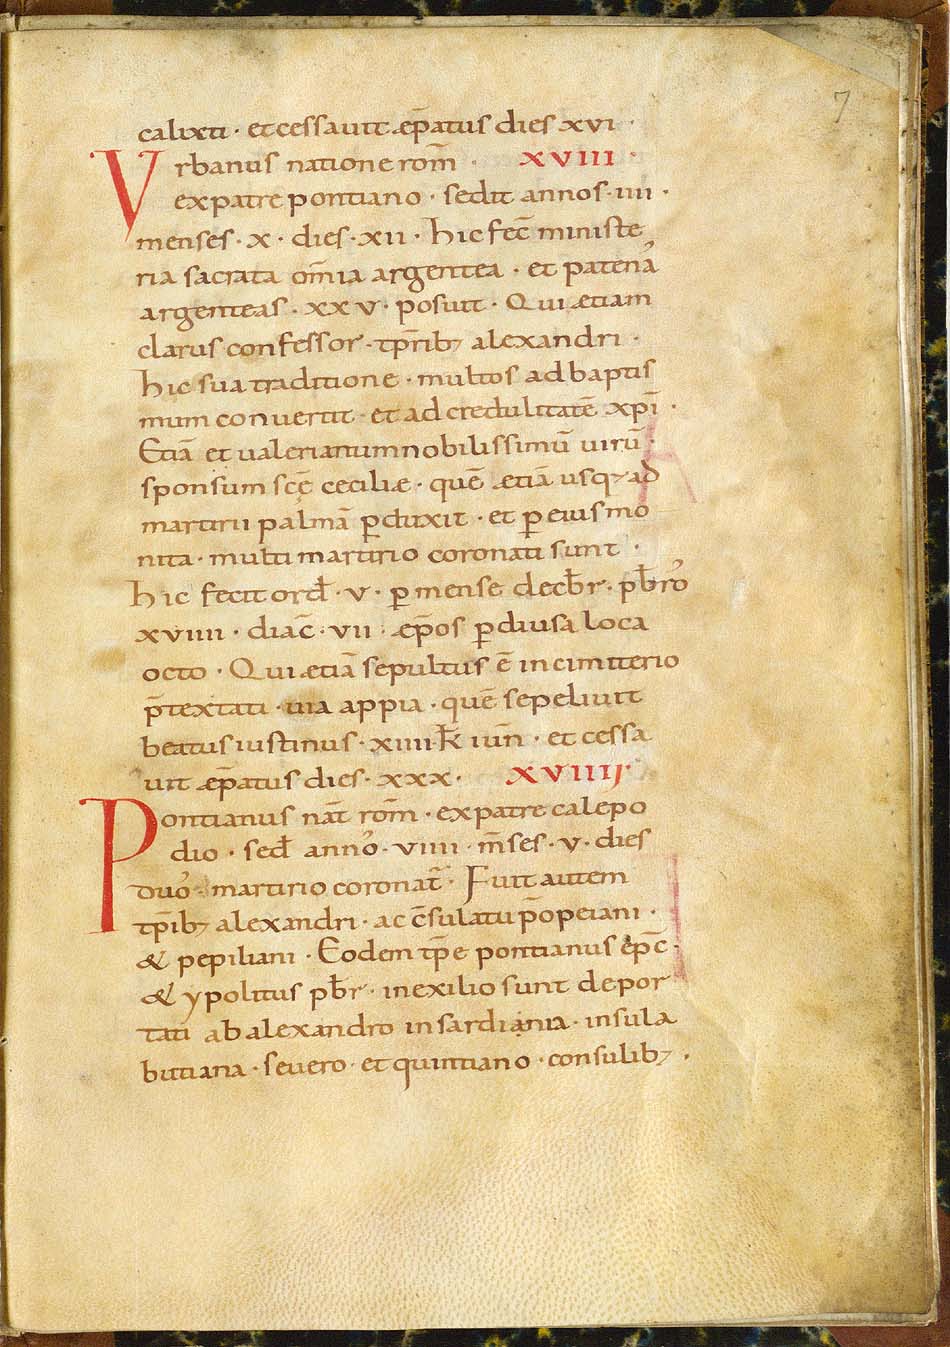 7
calixti · et cessauit aep̄atus dies xvi ·
Vrbanus natione rom̄ · XVIII ·
ex patre pontiano · sedit annos · iiii ·
menses · x · dies · xii · hic fec̄ ministe
ria sacrata om̄ia argentea · et patena
argenteas · xxv · posuit · Qui aetiam
clarus confessor · tp̄rib; alexandri ·
hic sua traditione · multos ad baptis
mum conuertit · et ad credulitatē xp̄i ·
Etiā et ualerianum nobilissimū uirū ·
sponsum scē ceciliae · quē aetiā usq; ad
martirii palmā ꝑduxit · et ꝑ eius mo
nita · multi martirio coronati sunt ·
hic fecit ord̄ · v · ꝑ mense decb̄r · pb̄ro
xviiii · diac̄ · vii · aep̄os ꝑ diuersa loca
octo · Qui aetiā sepultus ē in cimiterio
p̄textati · uia appia · quē sepeliuit
beatus iustinus · xiiii · k̄ iuñ · et cessa
uit aep̄atus dies · xxx · XVIIII ·
Pontianus nat̄ rom̄ · ex patre calepo
dio · sed̄ anno · viiii · m̄ses · v · dies
duo · martirio coronat̄ · Fuit autem
tp̄ib; alexandri · ac c̄sulatu p̄opeiani ·
& pepiliani · Eodem tp̄e pontianus ep̄c ·
& ypolitus pb̄r · in exilio sunt depor
tati ab alexandro in sardiania · insula
butiana · seuero · et quintiano · consulib; ·